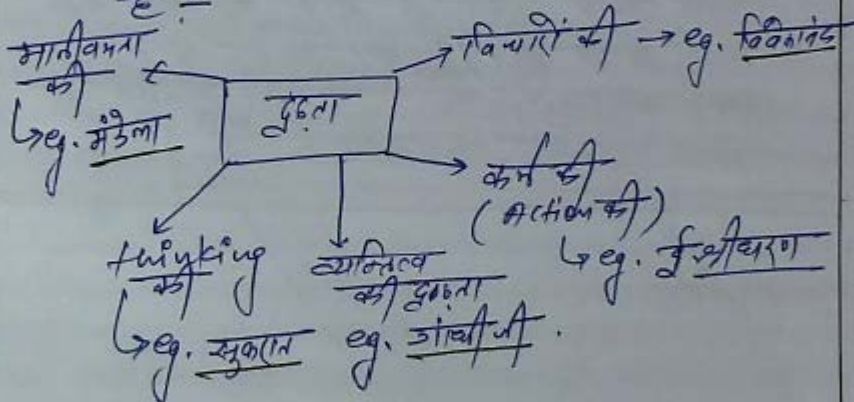 है :-
मानवियता
की
↳ eg. मंडेला
दृढ़ता
विचारों की → eg. विवेकानंद
कर्म की
(Action की)
↳ eg. ई श्रीधरण
thinking
की
↳ eg. सुकरात
व्यक्तित्व
की दृढ़ता
eg. गांधी जी .